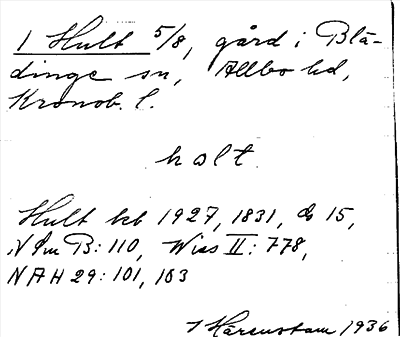 1 Hult 5/8, gård i Blä-
dinge sn, Allbo hd,
Kronob. l.
holt
Hult kb 1927, 1831, & 15,
N Sm B: 110, Wiss II: 778,
NAH 29: 101, 103
Hårenstam 1936